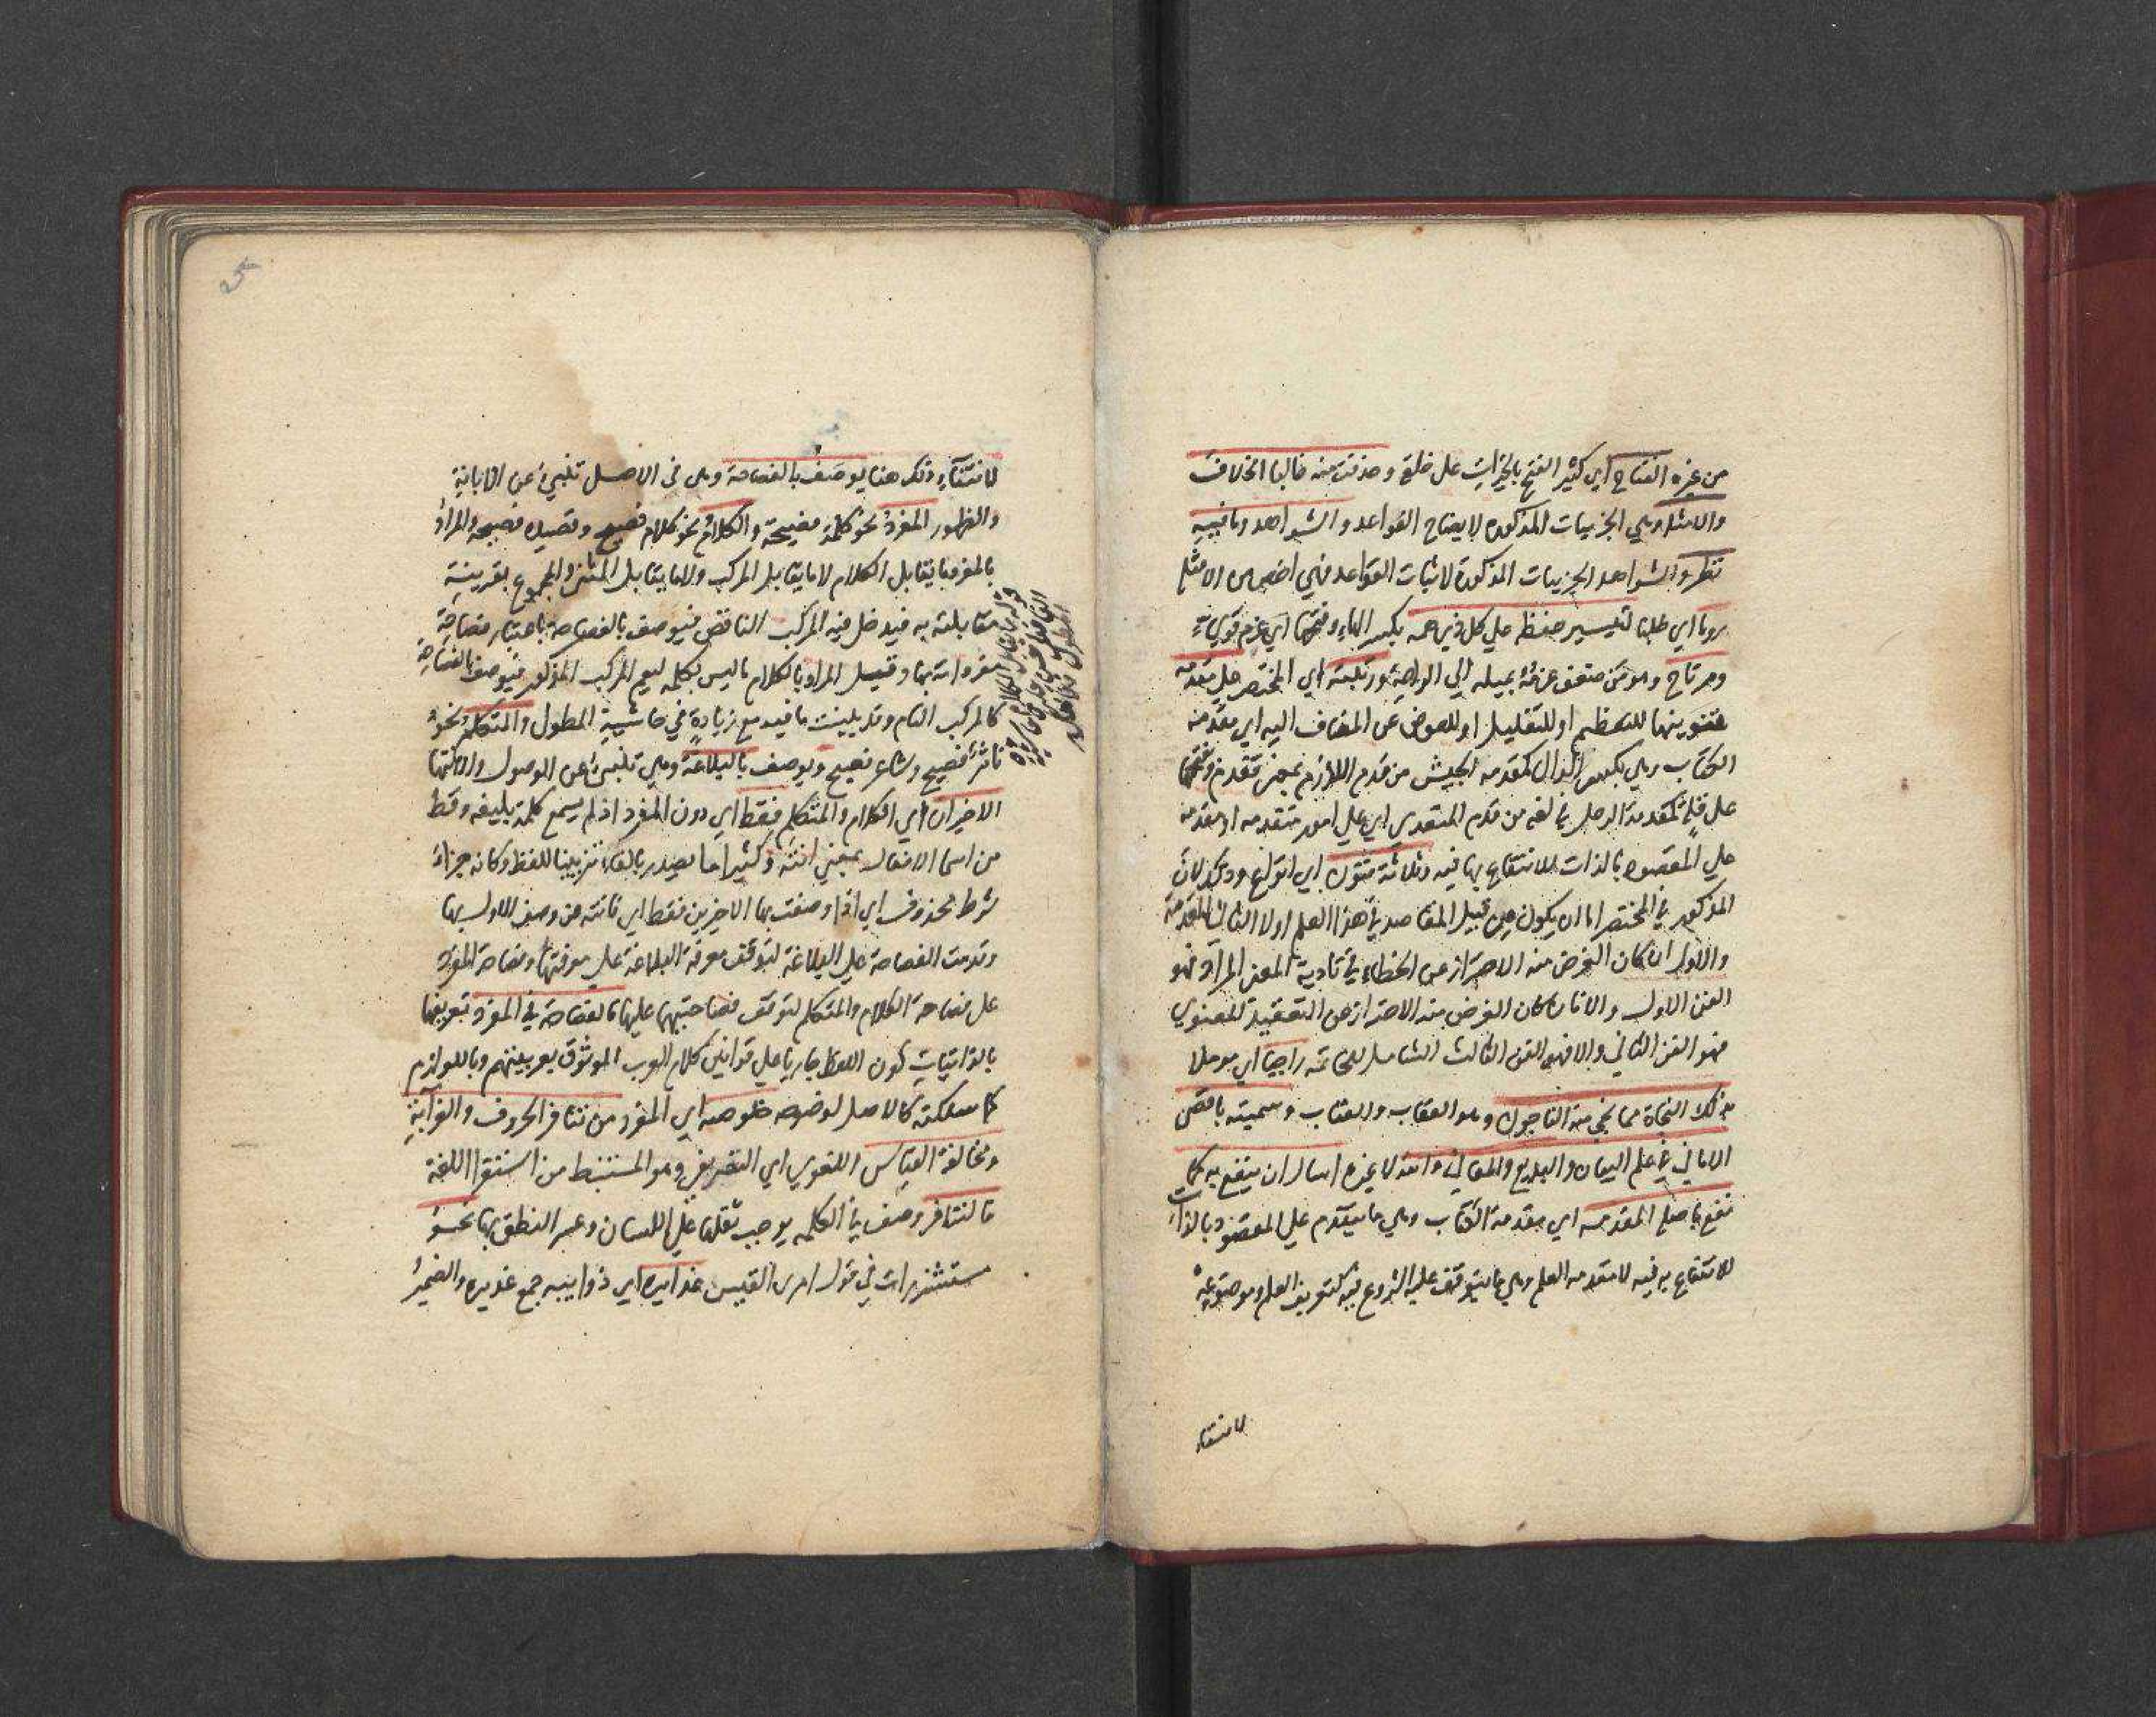 من غيره الفتاح اي كثير الفتح بالخيرات على خلقه وحذفت منه غالبا الخلاف
والامثله وهي الجزييات المذكورة لايضاح القواعد والشواهد وما فيه
نظر والشواهد الجزييات المذكورة لاثبات القواعد فهي اخص من الامثلة
روما اي طلبا لتيسير حفظ على كل ذي همه بكسر الهاء وفتحها اي عزم قوي
ومرتاح وهو من خفق عزمه بميله الى الراحة ورتبته اي المختصر على مقدمه
فتنوينها للتعظيم او للتقليل او للعوض عن المضاف اليه اي مقدمة
الكتاب وهي بكسر الدال كمقدمه الجيش من قدم اللازم بمعنى تقدم وفتحها
على قلة كمقدمة الرحل في لغه من قدم المتعدي اي على امور متقدمه او مقدمه
على المقصود بالذات للانتفاع بها فيه وثلاثة فنون اي انواع وذلك لان
المذكور في المختصر اما ان يكون من قبيل المقاصد في هذا العلم اولا الثاني المقدمة
والاول ان كان الغرض منه الاحتراز عن الخطاء في تادية المعنى المراد فهو
الفن الاول والا فان كان الغرض منه الاحتراز عن التعقيد المعنوي
فهو الفن الثاني والا فهو الفن الثالث الشامل للخاتمه راجيا اي موملا
بذلك النجاة مما نجى منه الناجون وهو العقاب والعتاب وسميته باقصى
الاماني في علم البيان والبديع والمعاني والله لا غيره اسال ان ينفع به كما
نفع باصله المقدمه اي مقدمة الكتاب وهي ما يتقدم على المقصود بالذات
للانتفاع به فيه لا مقدمه العلم وهي ما يتوقف عليه الشروع فيه كتعريف العلم وموضوعه
لانتفاء
لانتفاء ذلك هنا يوصف بالفصاحة وهي في الاصل تنبئ عن الابانة
والظهور المفرد نحو كلمة فصيحة والكلام نحو كلام فصيح وقصيده فصيحه والمراد
بالمفرد ما يقابل الكلام لا ما يقابل المركب ولا ما يقابل المثنى والمجموع بقرينة
مقابلته به فيدخل فيه المركب الناقص فيوصف بالفصاحة باعتبار فصاحة
مفرداته بها وقيل المراد بالكلام ما ليس بكلمه ليعم المركب المذكور فيوصف بالفصاحة
كالمركب التام وقد بينت ما فيه مع زيادة في حاشية المطول والمتكلم نحو
ناثر فصيح وشاعر فصيح ويوصف بالبلاغة وهي تنبئ عن الوصول والانتها
الاخيران اي الكلام والمتكلم فقط اي دون المفرد اذ لم يسمع كلمة بليغه وقط
من اسما الافعال بمعنى انته وكثيرا ما يصدر بالفاء تزيينا للفظ وكانه جزاء
شرط محذوف اي اذا وصفت بها الاخيرين فقط اي فانته عن وصف الاول بها
وقدمت الفصاحة على البلاغة لتوقف معرفة البلاغة على معرفتها وفصاحة المفرد
على فصاحة الكلام والمتكلم لتوقف فصاحتيهما عليها فالفصاحة في المفرد تعريفها
بالذاتيات كون اللفظ جاريا على قوانين كلام العرب الموثوق بعربيتهم وباللوازم
كما سلكته كالاصل لوضوحه خلوصه اي المفرد من تنافر الحروف والغرابة
ومخالفة القياس اللغوي اي التصريفي وهو المستنبط من استقرا اللغة
فالتنافر وصف في الكلمه يوجب ثقلها على اللسان وعسر النطق بها نحو
مستشزرات في قول امرئ القيس غدايره اي ذوايبه جمع غديره والضمير